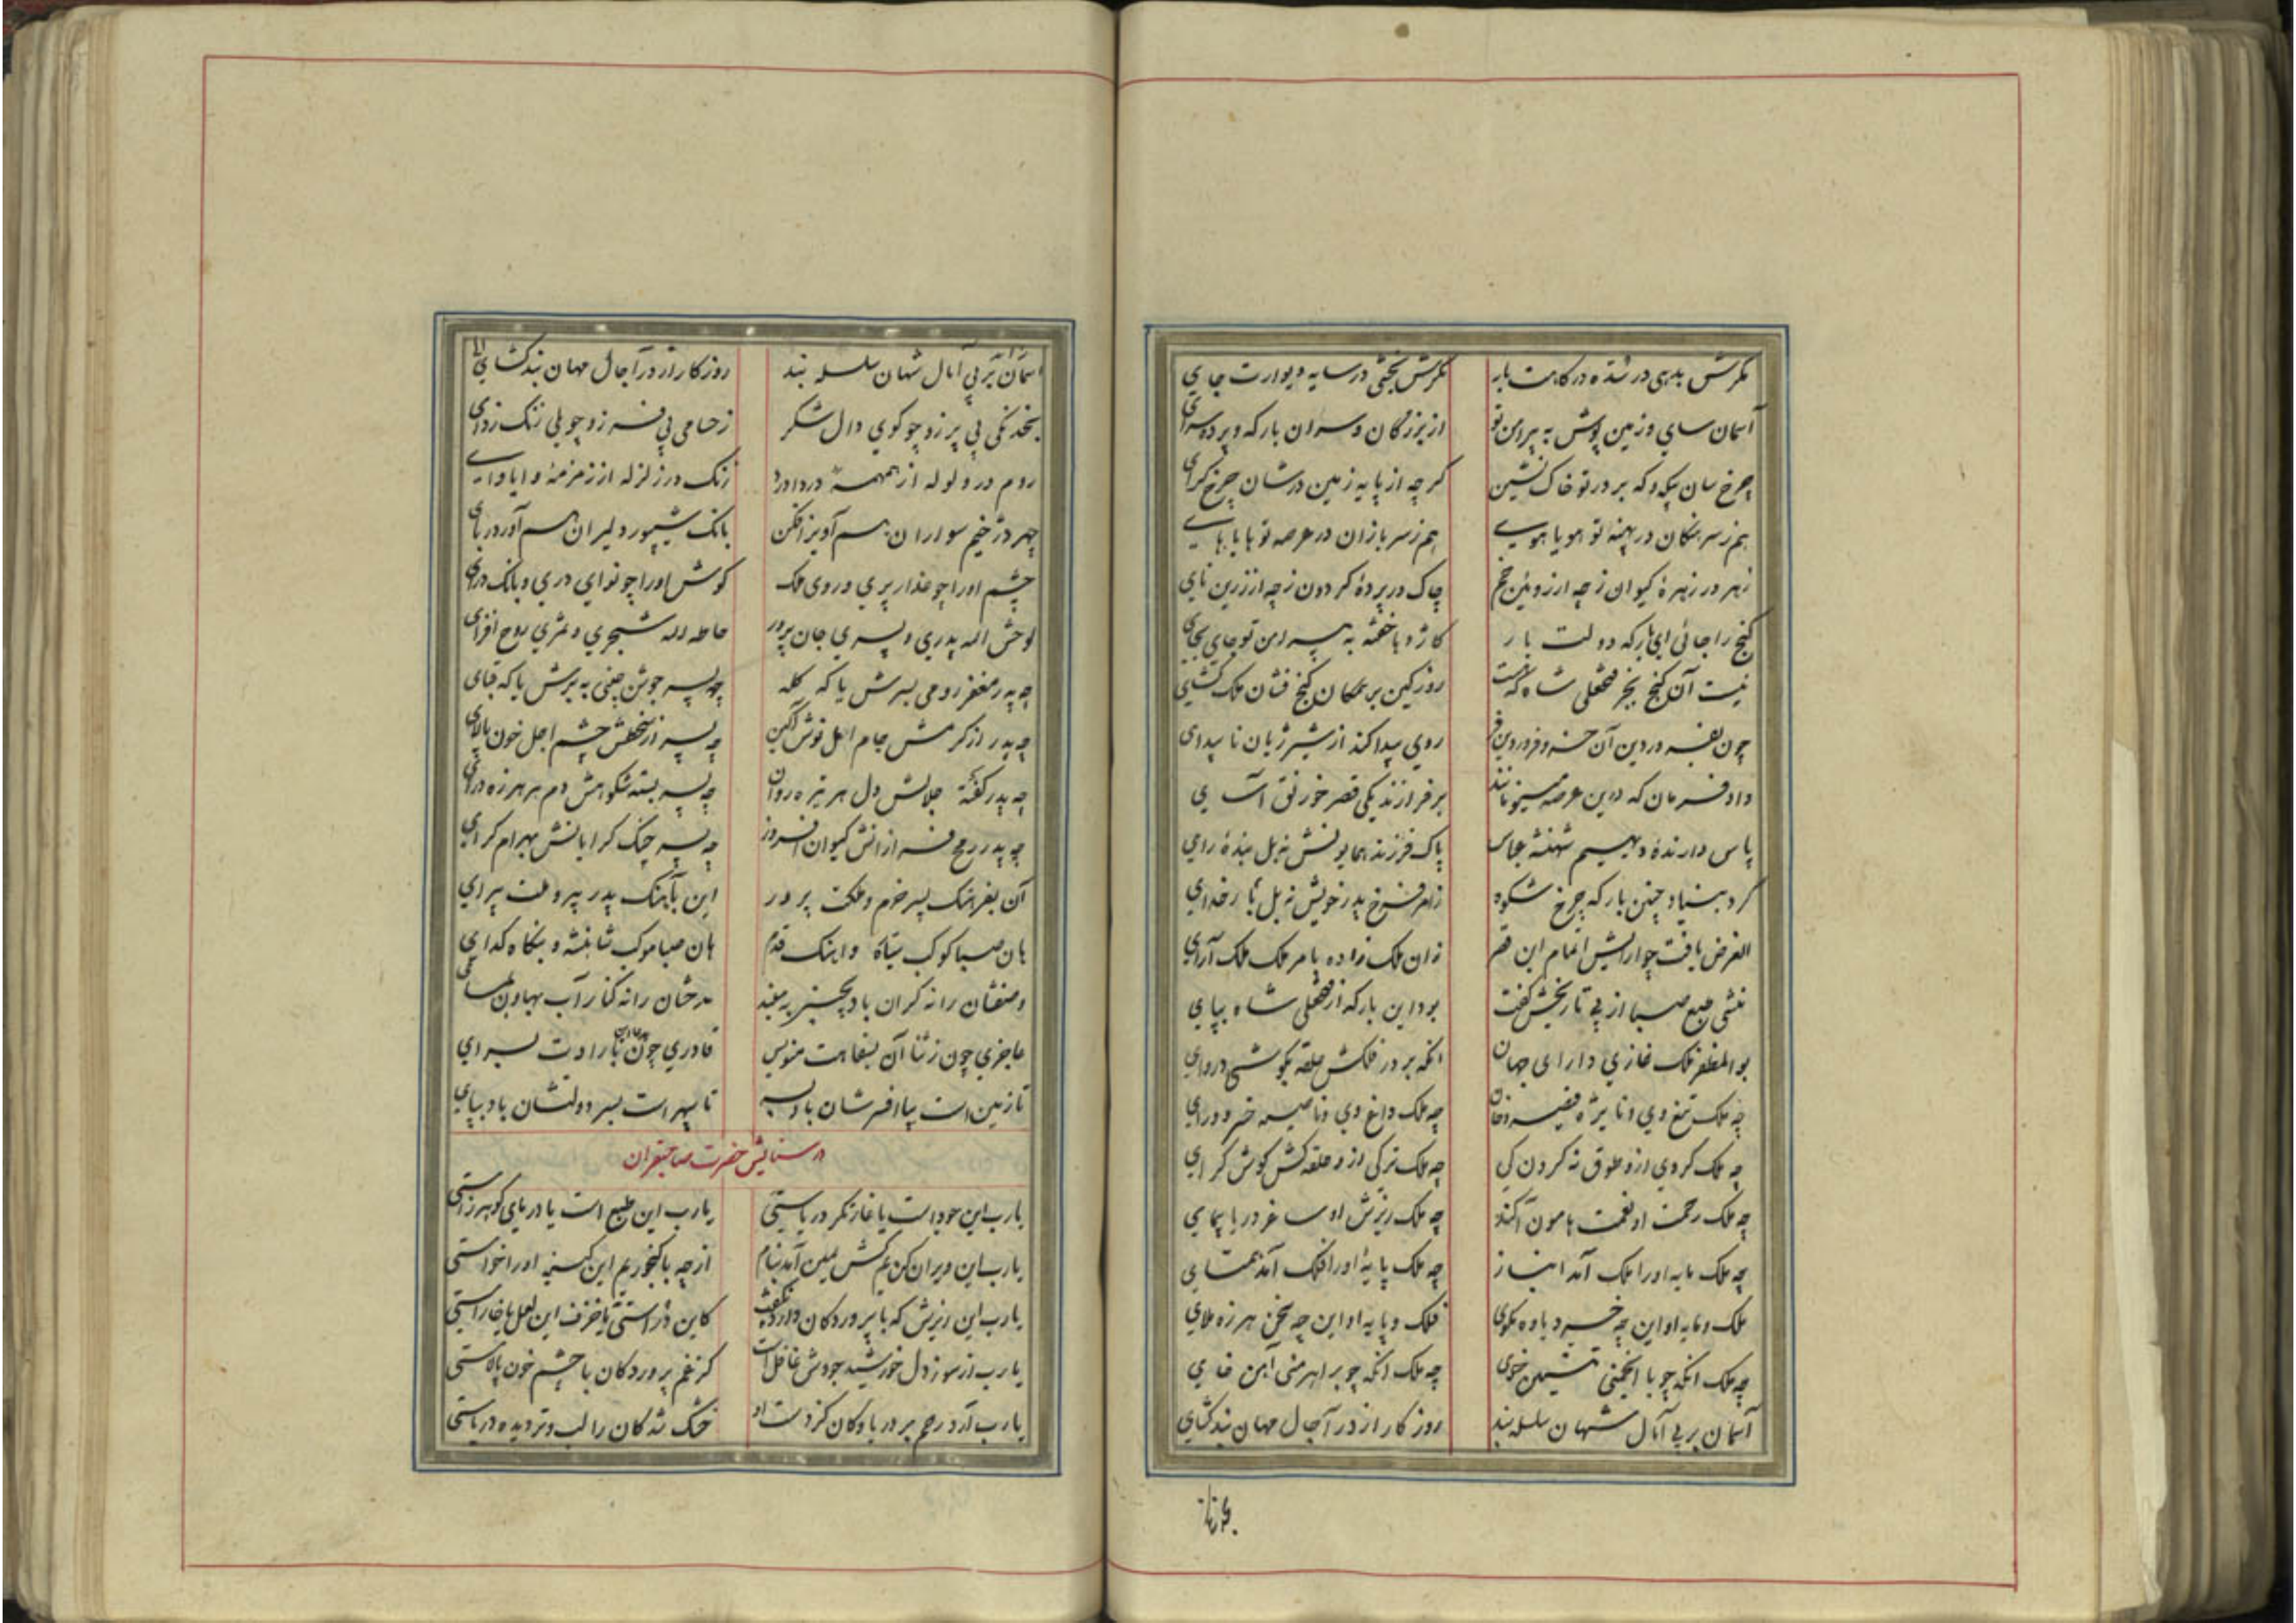 مگرش بدهی در شده درگاهت بار مگرش بختی در سایه دیوارت جای
آسمان سای و زمین پوش به پیرامن تو از بزرگان و سران بارگه و پرده سرای
چرخ سان که بر در تو خاک نشین گر چه از پایه زمین درشان چرخ گرای
هم ز سرهنگان در پهنه تو هویا هوی هم ز سربازان در عرصه تو هایا های
زهره در زهرهٔ کیوان ز چه از رویین خم چاک در پردهٔ گردون ز چه از زرین نای
گنج را جائی ای بارگه دولت بار به پیرامن تو جای بجای
نیست آن گنج بجز فتحعلی شاه که هست روز کین بر گنج فشان ملک گشای
چون روی پیدا کند از شیر ژیان ناپیدای
داد فرمان که درین عرصه مینو مانند برفرازند یکی قصر خورنق آسای
پاس دارندهٔ دیهیم شهنشه عباس پاک فرزند همایونش نه بل بندهٔ رای
کرد بنیاد چنین بارگه چرخ شکوه ز امر فرخ پدر خویش نه بل بار خدای
الغرض یافت چو آرایش اتمام این قصر زان ملک زاده بامر ملک ملک آرای
منشی طبع صبا از پی تاریخش گفت بود این بارگه از فتحعلی شاه بپای
بوالمظفر ملک غازی دارای جهان آنکه بر در فلکش حلقه بگوشی دروای
چه ملک تیغ وی و قیصر و خان چه ملک داغ وی و ناصیه خسرو و رای
چه ملک کردی ازو طوق نه گردون کی چه ملک ترکی ازو حلقه کش گوش گرای
چه ملک رحمت او نعمت هامون آکند چه ملک ریزش او ساغر دریا پیمای
چه ملک مایه او را ملک آمد انباز چه ملک پایهٔ او را فلک آمد همتای
ملک و مایه او این چه خسرد یاوه مگوی فلک و پایه او این چه سخن هرزه ملای
چه ملک آنکه چو با انجمنی خوی چه ملک آنکه چو بر اهرمنی آهن خای
آسمان بر پی آمال شهان سلسله بند روزگار از در آجال مهان بند گشای
آسمان بر پی آمال شهان سلسله بند روزگار از در آجال مهان بند گشای
بخدنگی پی پر زو چو گوی دال شکر ز حسامی پی زو چو یلی زنگ زدای
روم در ولوله از همهمهٔ دردادرد زنگ در زلزله از زمزمهٔ وایاوای
چهر دژخیم سواران آویز افکن بانگ شیپور دلیران آور در بای
چشم او را چو عذار پری و روی ملک گوش او را چو نوای دری و بانگ درای
لوحش الله پدری و پسری جان پرور حاطه الله شجری و ثمری روح افزای
چه پدر مغفر رومی بسرش یا که کله چه پسر جوشن چینی به برش یا که قبای
چه پدر از کرمش جام امل نوش آگین چه پسر از سخطش چشم اجل خون پالای
چه پدر گفته جلالش دل هر تیره روان چه پسر بسته شکوهش دم هر هرزه درای
چه پدر رمح کیوان افروز چه پسر چنگ بهرام گرای
آن بفرهنگ پسر خرم و ملکت پرور این بآهنگ پدر پیرو ملت پیرای
هان صبا کوکب و اینک قدم هان صبا موکب شاهنشه و بنگاه گدای
وصفشان را نه کران باد بچنبر به مبند مدحشان را نه کنار آب بهاون بمسای
عاجزی چون ز ثنا آن بسفاهت منویس قادری چون بدعا این بارادت بسرای
تا زمین است بپا افسرشان باد بسر تا سپهر است بسر دولتشان باد بپای
در ستایش حضرت صاحبقران
یارب این جود است یا غارتگر دریاستی یارب این طبع است یا دریای گوهرزاستی
یارب این ویران کن یم کش یمین آمد بنام از چه با گنجور یم این کینه او را خواستی
یارب این ریزش که با پروردگان دارد کفش کاین در استی یا خزف این لعل یا خاراستی
یارب از سوز دل خورشید جودش غافل است کز غم پروردگان با چشم خون پالاستی
یارب آرد رحم بر دریا و کان کز دست او خشک شد کان را لب و تر دیده دریاستی